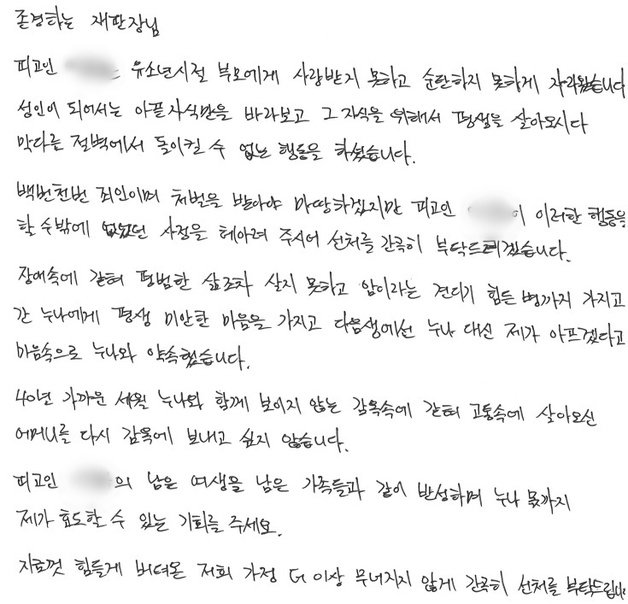 존경하는 재판장님
피고인 는 유소년시절 부모에게 사랑받지 못하고 순탄하지 못하게 자라왔습니다
성인이 되어서는 아픈자식만을 바라보고 그 자식을 위해서 평생을 살아오시다
막다른 절벽에서 돌이킬 수 없는 행동을 하셨습니다.
백번천번 죄인이며 처벌을 받아야 마땅하겠지만 피고인 이 이러한 행동을
할 수밖에 없었던 사정을 헤아려 주시어 선처를 간곡히 부탁드리겠습니다.
장애속에 갇혀 평범한 삶조차 살지 못하고 암이라는 견디기 힘든 병까지 가지고
간 누나에게 평생 미안한 마음을 가지고 다음생에선 누나 대신 제가 아프겠다고
마음속으로 누나와 약속했습니다.
40년 가까운 세월 누나와 함께 보이지 않는 감옥속에 갇혀 고통속에 살아오신
어머니를 다시 감옥에 보내고 싶지 않습니다.
피고인 의 남은 여생을 남은 가족들과 같이 반성하며 누나 몫까지
제가 효도할 수 있는 기회를 주세요.
지금껏 힘들게 버텨온 저희 가정 더 이상 무너지지 않게 간곡히 선처를 부탁드립니다